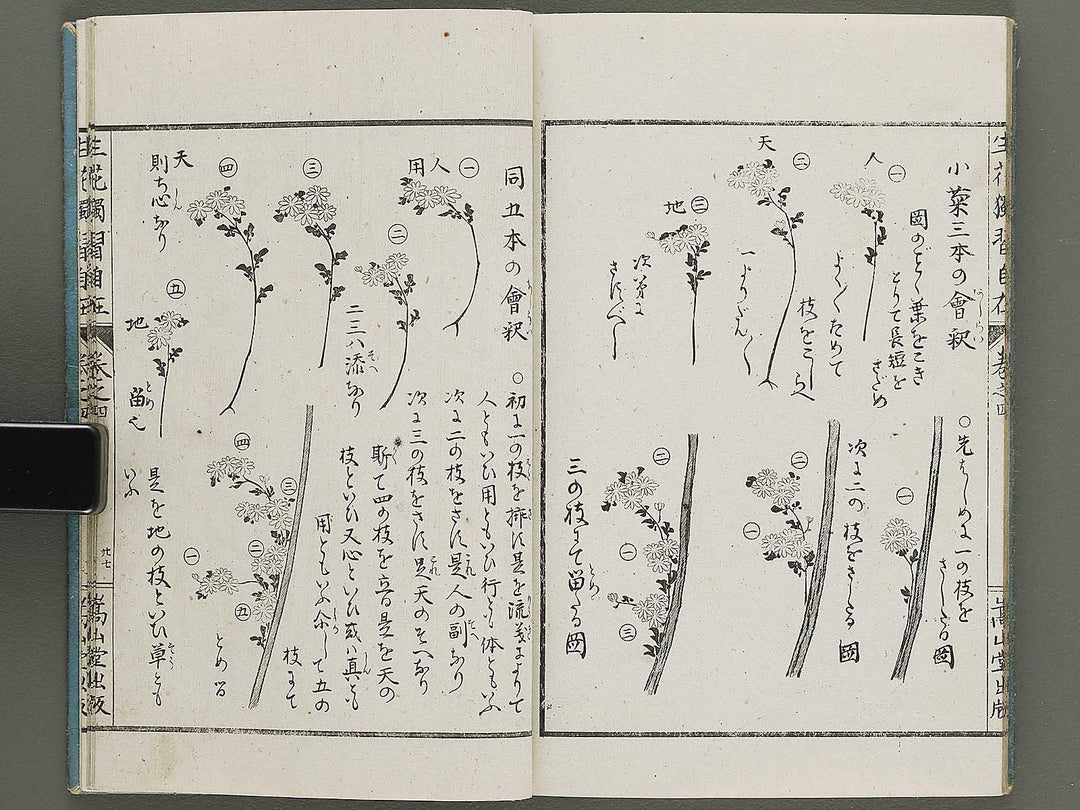 生花獨習自在 巻之四
嵩山堂出版
小菊三本の會釈
一
人
図のごとく葉をこき
とりて長短を
さだめ
よく/\ためて
二
天
枝をこしらへ
一よりだん/\
三
地
次第に
さすべし
○先はじめに一の枝を
さしたる図
一
次に二の枝をさしたる図
二
一
三の枝にて留たる図
二
一
三
同五本の會釈
一
人
用
二
三
二三ハ添なり
四
天
則ち心なり
五
地
留也
○初に一の枝を挿す是を流義によりて
人ともいひ用ともいひ行とも体ともいふ
次に二の枝をさす是人の副なり
次に三の枝をさす是天のそへなり
斯て四の枝を立る是を天の
枝といひ又心といひ或ハ真とも
用ともいふ
して五の
枝にて
とめる
四
三
二
一
五
是を地の枝といひ草とも
いふ
生花獨習自在 巻之四
廿七
嵩山堂出版